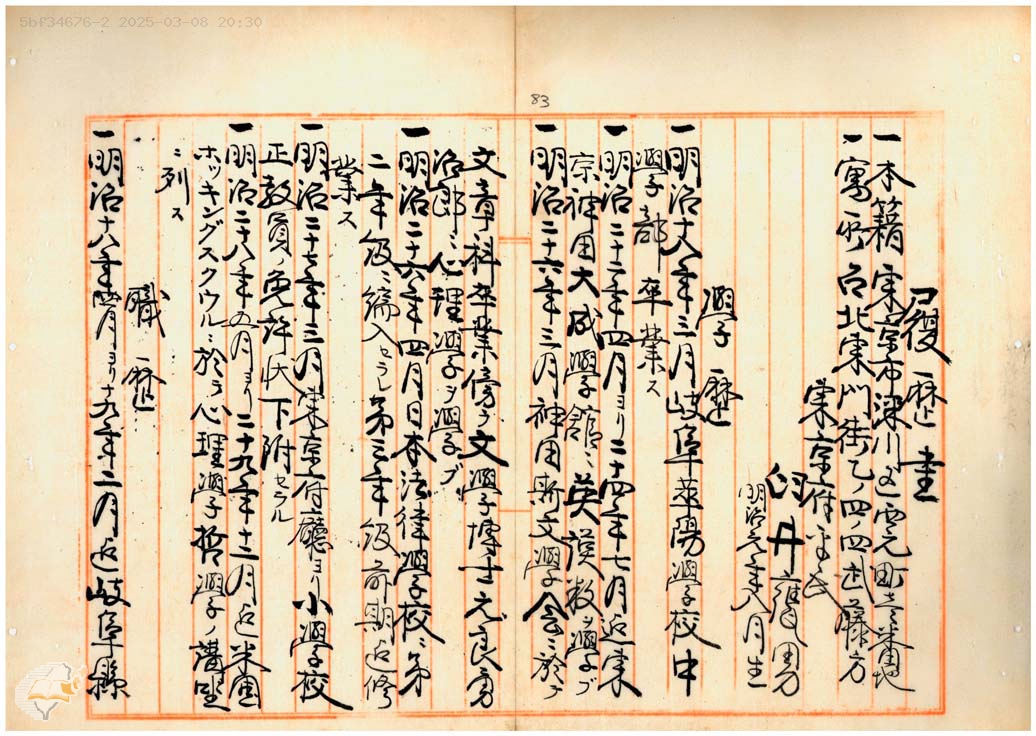 5bf34676-2 2025-03-08 20:30
83
履歴書
一本籍東京市深川区霊元町
一寓所台北東門街乙ノ四ノ四武藤方
東京府平民
臼井
明治元年八月生
學歴
一明治十八年三月岐阜華陽學校中
學部卒業ス
一明治二十二年四月ヨリ二十四年七月迄東
京神田大成學舘ニ英漢数ヲ學ブ
一明治二十六年三月神田斯文學会ニ於テ
文章科卒業傍ラ文學博士元良勇
治郎ニ心理學ヲ學ブ
一明治二十六年四月日本法律學校ニ第
二年級ニ編入セラレ第三年級前期迄修
業ス
一明治二十七年三月東京府廳ヨリ小學校
正教員ノ免許状下附セラル
一明治二十八年五月ヨリ二十九年十二月迄米國
ホッキングスクウルニ於テ心理學哲學ノ講堂
ニ列ス
職歴
一明治十八年四月ヨリ十九年三月迄岐阜縣